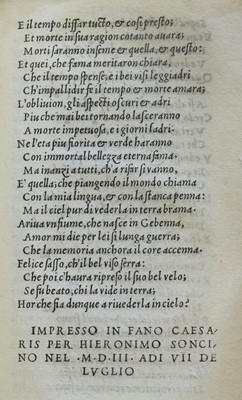 E il tempo disfar tutto, & cosi presto;
Et morte in sua ragion cotanto avara;
Morti saranno insieme & quella, & questo:
Et quei, che fama meritaron chiara,
Che il tempo spense; e i bei visi leggiadri
Ch'impallidir fe il tempo & morte amara;
L'oblivion, gli aspecti oscuri & adri
Piu che mai bei tornando lasceranno
A morte impetuosa, e i giorni ladri.
Ne l'eta piu fiorita & verde haranno
Con immortal bellezza eterna fama.
Ma inanzi a tutti, ch'a rifar si vanno,
E' quella; che piangendo il mondo chiama
Con la mia lingua, & con la stanca penna:
Ma il ciel pur di vederla in terra brama.
A riva un fiume, che nasce in Gebenna,
Amor mi die per lei si lunga guerra;
Che la memoria anchora il core accenna.
Felice sasso, ch'il bel viso serra:
Che poi c'haura ripreso il suo bel velo;
Se fu beato, chi la vide in terra;
Hor che fia dunque a rivederla in cielo?
IMPRESSO IN FANO CAESA-
RIS PER HIERONIMO SONCI-
NO NEL ·M·D·III· ADI VII DE
LVGLIO